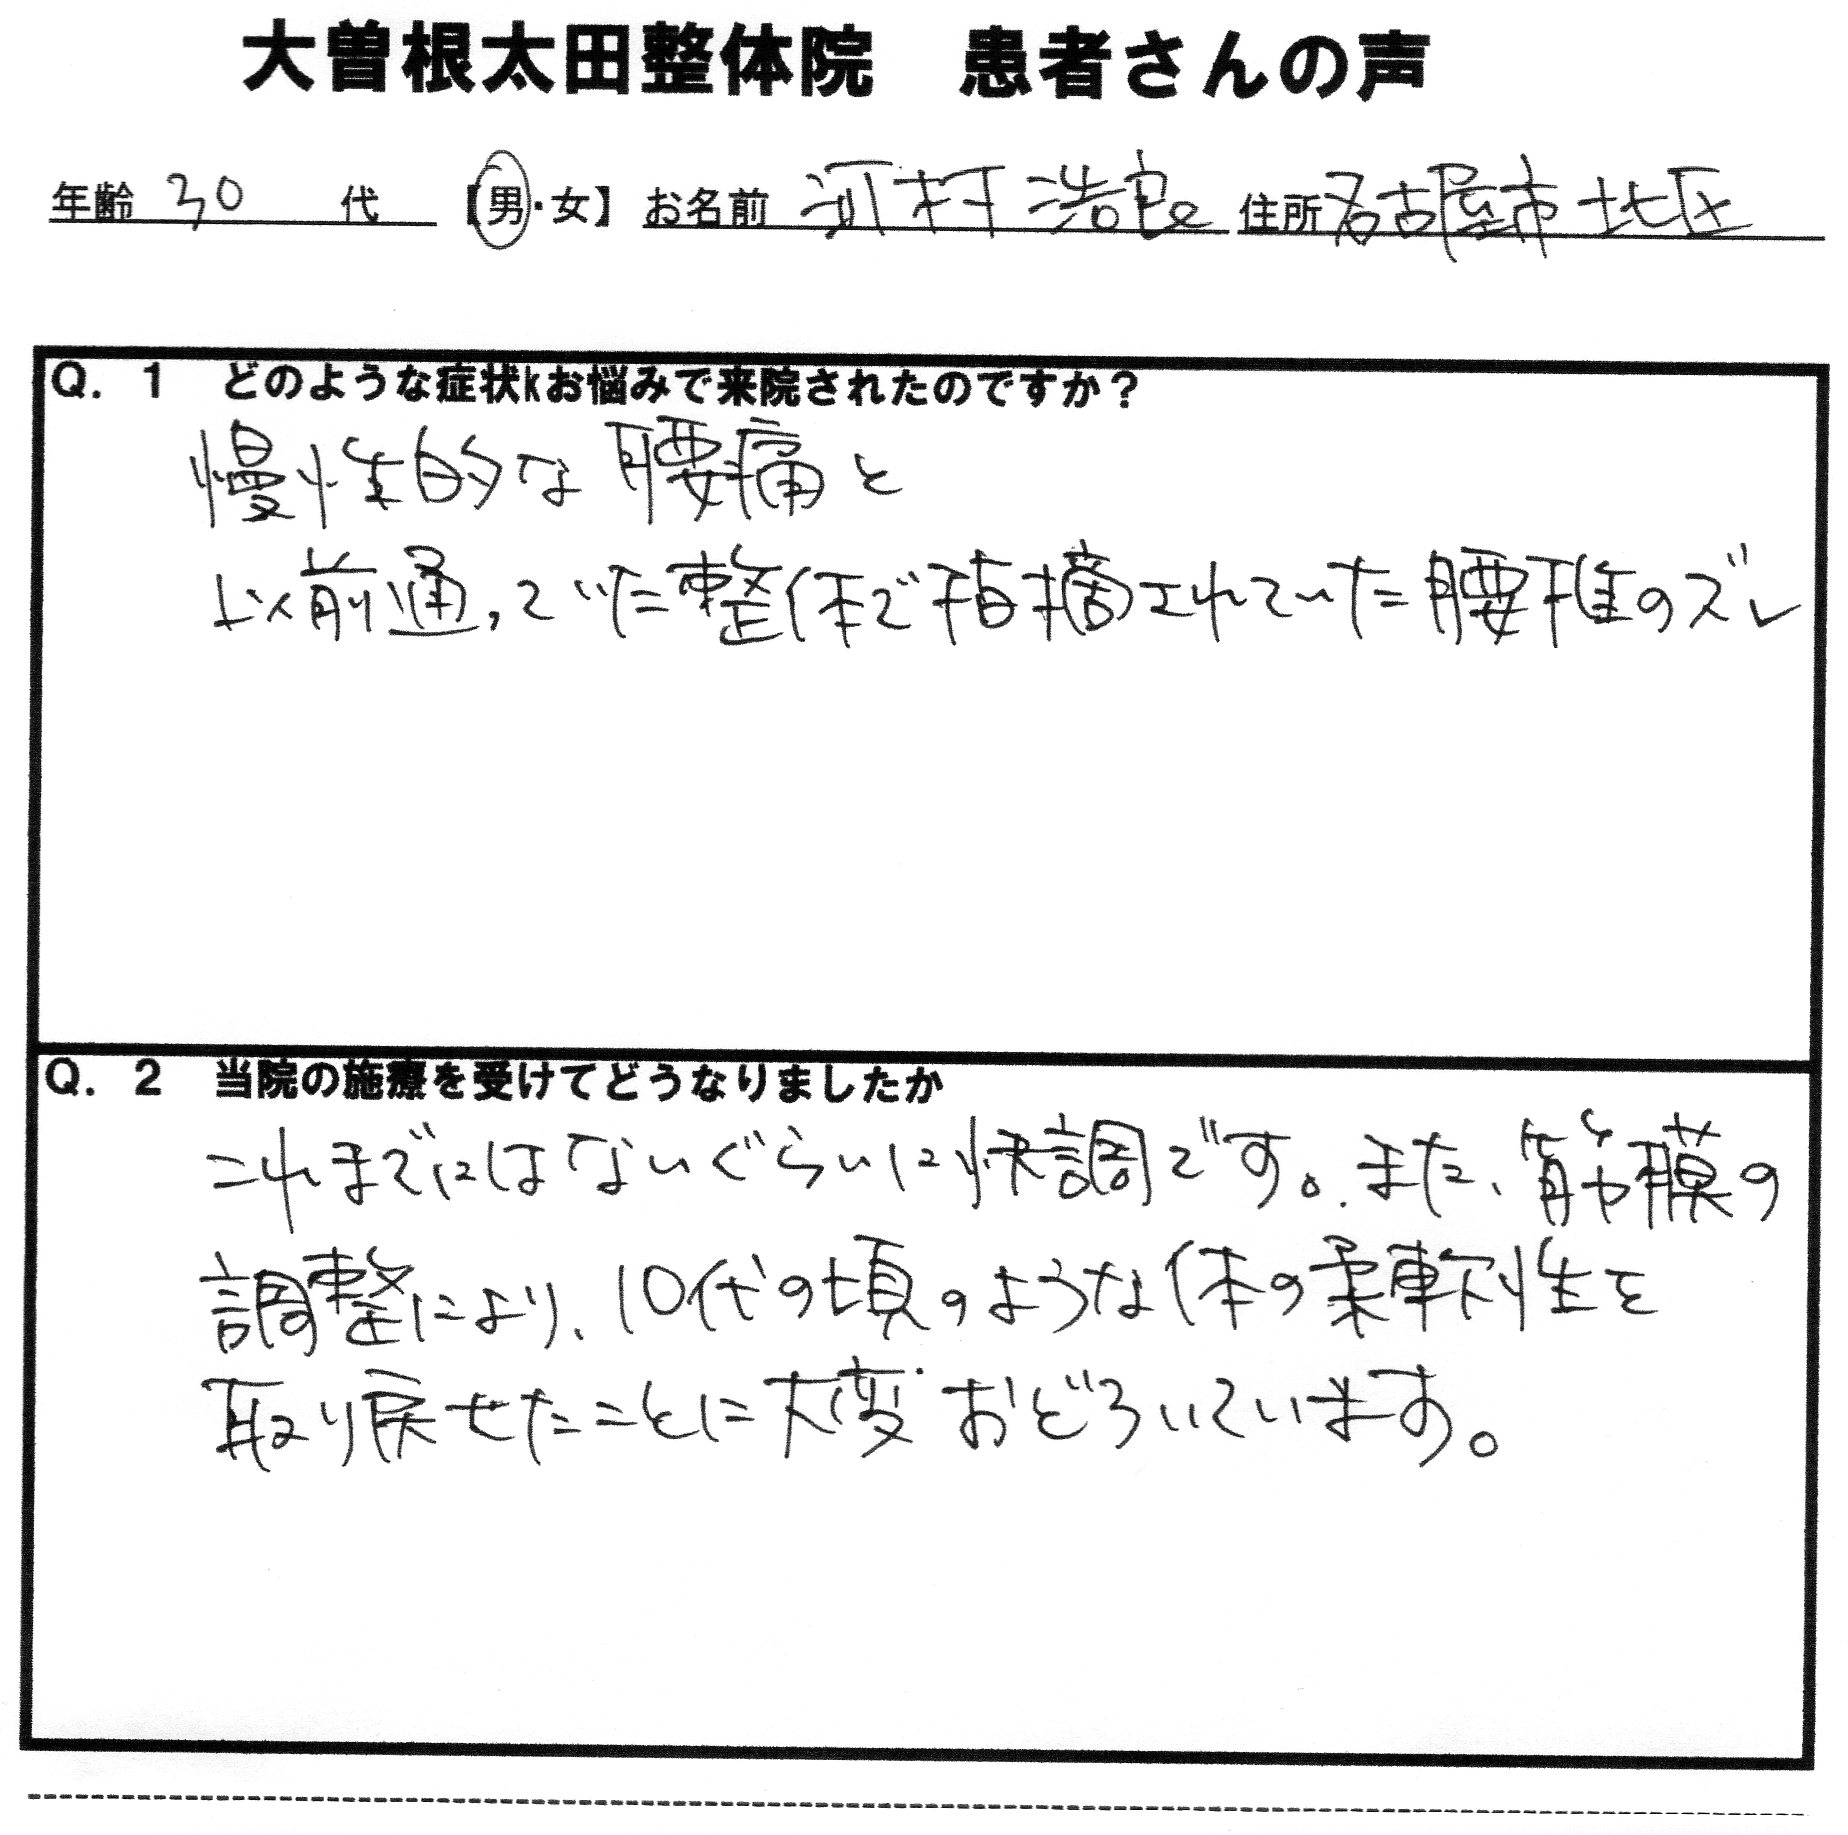 大曽根太田整体院　患者さんの声
年齢 30 代 【男・女】 お名前 河村 浩良 住所 名古屋市 北区
Q. 1　どのような症状kお悩みで来院されたのですか？
慢性的な腰痛と
以前通っていた整体で指摘されていた腰椎のズレ
Q. 2　当院の施療を受けてどうなりましたか
これまでにはないぐらいに快調です。また、筋膜の
調整により、10代の頃のような体の柔軟性を
取り戻せたことに大変おどろいています。